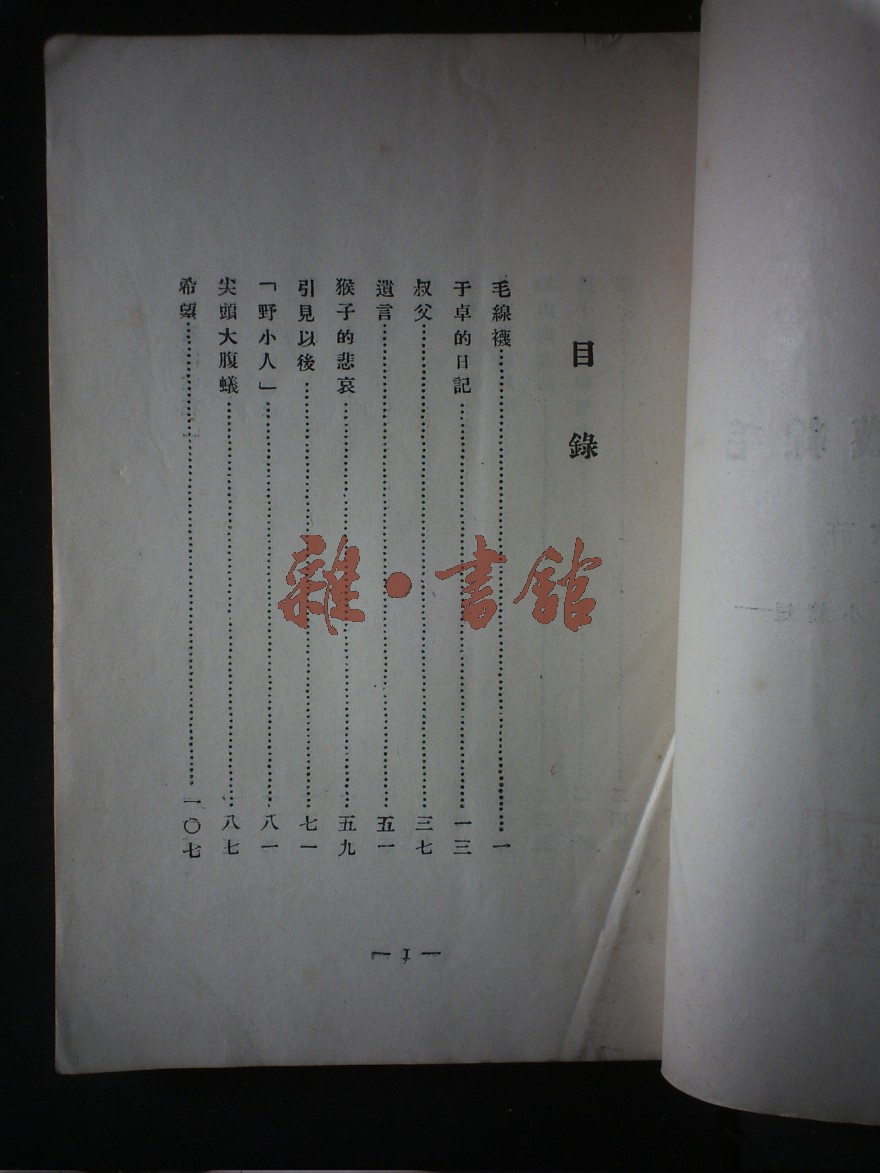 目錄
毛線襪……一
于卓的日記……一三
叔父……三七
遺言……五一
猴子的悲哀……五九
引見以後……七一
「野小人」……八一
尖頭大腹蟻……八七
希望……一〇七
— I —
雜·書館